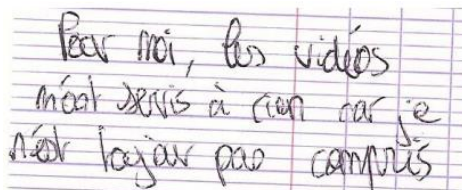 Pour moi, les vidéos
m'ont servis à rien car je
n'est toujar pas compris